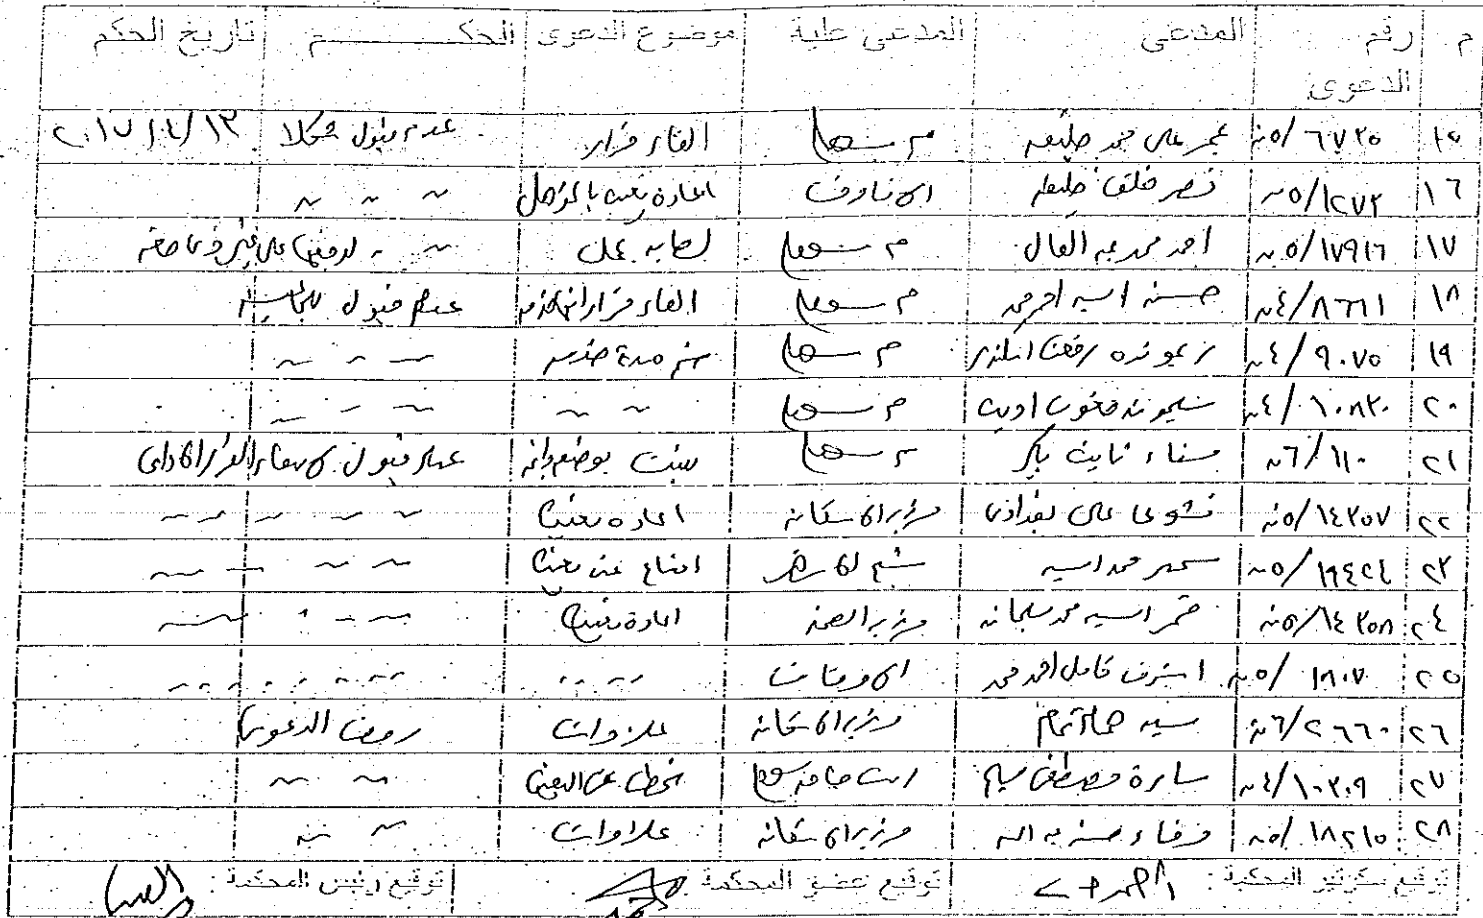 م رقم الدعوى المدعى المدعى علية موضوع الدعوى الحكم تاريخ الحكم
١٥ ٦٧٣٥/٥ق عمر على محمد خليفه م سوهاج الغاء قرار عدم قبول شكلا ٢٠١٧/٤/١٣
١٦ ١٢٧٣/٥ق نصر خلف خليفه الاوقاف اعادة تعيين بالمؤهل ~ ~ ~
١٧ ١٧٩١٦/٥ق احمد محمد عبد العال م سوهاج اصابه عمل ~ ~ لرفعها على غير ذى صفه
١٨ ٨٦٦١/٤ق حسنه السيد احمد محمد م سوهاج الغاء قرار انهاء خدمه عدم قبول
١٩ ٩٠٧٥/٤ق ريمونده رفعت اسكندر م سوهاج ضم مدة خدمه ~ ~ ~
٢٠ ١٠٨٣٠/٤ق م سوهاج ~ ~ ~ ~ ~
٢١ ١١٠/٦ق سناء ثابت باكر م سوهاج تثبيت بوظيفة دائمه عدم قبول لانتفاء القرار الادارى
٢٢ ١٤٣٥٧/٥ق نشوى على بغدادى وزير الاسكان اعاده تعيين ~ ~ ~ ~ ~
٢٣ ١٩٤٢٤/٥ق سمير محمد السيد شيخ الازهر امتناع عن تعيين ~ ~ ~ ~
٢٤ ١٤٣٥٨/٥ق قمر السيد محمد سليمان وزير الصحة اعادة تعيين ~ ~ ~ ~
٢٥ ١٨٠٧/٥ق اشرف كامل احمد محمد الاوقاف ~ ~ ~ ~ ~ ~
٢٦ ٢٦٦٠/٦ق سيد همام تمام وزير الاسكان علاوات رفض الدعوى
٢٧ ١٠٣٠٩/٤ق سارة مصطفى سليم جامعه سوهاج تخطى فى التعيين ~ ~
٢٨ ١٨٢١٥/٥ق وفاء حسن عبد الله وزير الاسكان علاوات ~ ~
توقيع سكرتير المحكمة : توقيع عضو المحكمة : توقيع رئيس المحكمة :